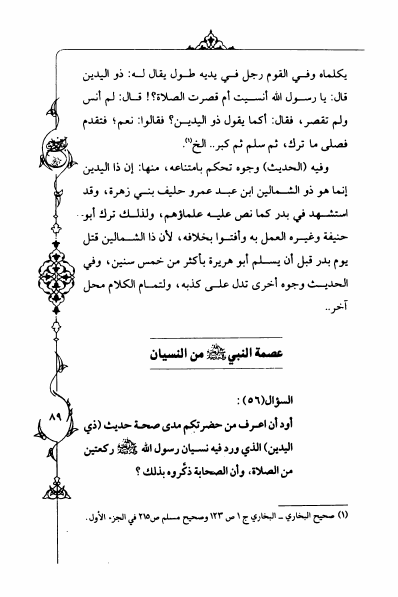 يكلماه وفي القوم رجل في يديه طول يقال له: ذو اليدين
قال: يا رسول الله أنسيت أم قصرت الصلاة؟! قال: لم أنس
ولم تقصر، فقال: أكما يقول ذو اليدين؟ فقالوا: نعم؛ فتقدم
فصلى ما ترك، ثم سلم ثم كبر.. الخ(١).
وفيه (الحديث) وجوه تحكم بامتناعه، منها: إن ذا اليدين
إنما هو ذو الشمالين ابن عبد عمرو حليف بني زهرة، وقد
استشهد في بدر كما نص عليه علماؤهم، ولذلك ترك أبو
حنيفة وغيره العمل به وأفتوا بخلافه، لأن ذا الشمالين قتل
يوم بدر قبل أن يسلم أبو هريرة بأكثر من خمس سنين، وفي
الحديث وجوه أخرى تدل على كذبه، ولتمام الكلام محل
آخر..
عصمة النبي ﷺ من النسيان
السؤال(٥٦) :
أود أن اعرف من حضرتكم مدى صحة حديث (ذي
اليدين) الذي ورد فيه نسيان رسول الله ﷺ ركعتين
من الصلاة، وأن الصحابة ذكّروه بذلك ؟
(١) صحيح البخاري ـ البخاري ج ١ ص ١٢٣ وصحيح مسلم ص٢١٥ في الجزء الأول.
٨٩